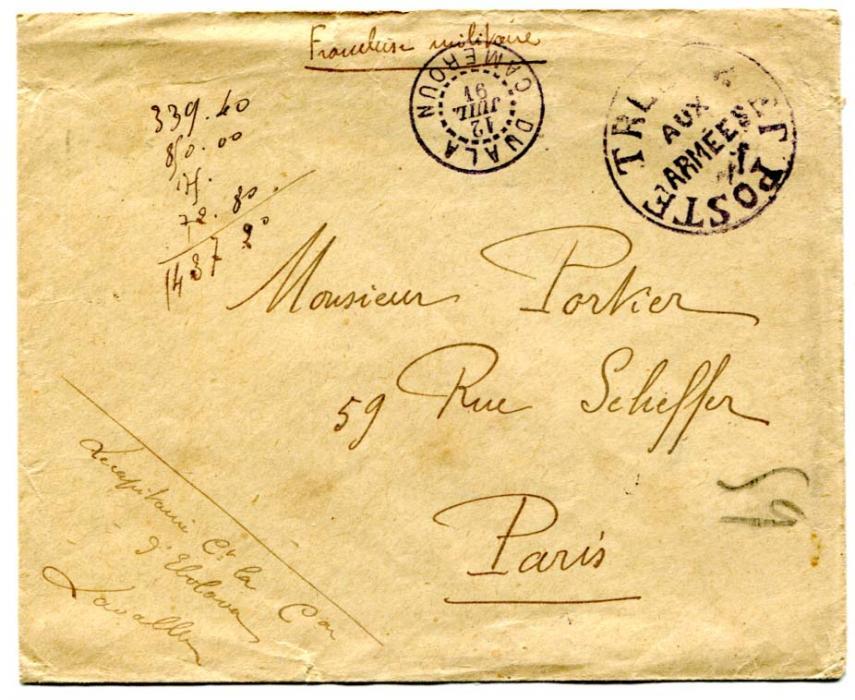 Franchise militaire
DUALA
CAMEROUN
12
JUIL
16
TRÉSOR ET POSTES
AUX
ARMÉES
339.40
850.00
175.
72.80
1437 20
Monsieur Portier
59 Rue Scheffer
Paris
Le capitaine Ct la Cie
d'Ebolowa
59